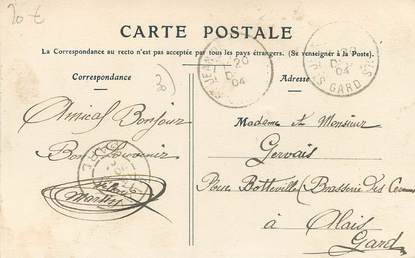 20 €
CARTE POSTALE
La Correspondance au recto n'est pas acceptée par tous les pays étrangers. (Se renseigner à la Poste).
Correspondance
Adresse
20
04
GARD
04
Amical Bonjour
Bon Souvenir
Madame et Monsieur
Gervais
Place Botteville (Brasserie des
à Alais
Gard